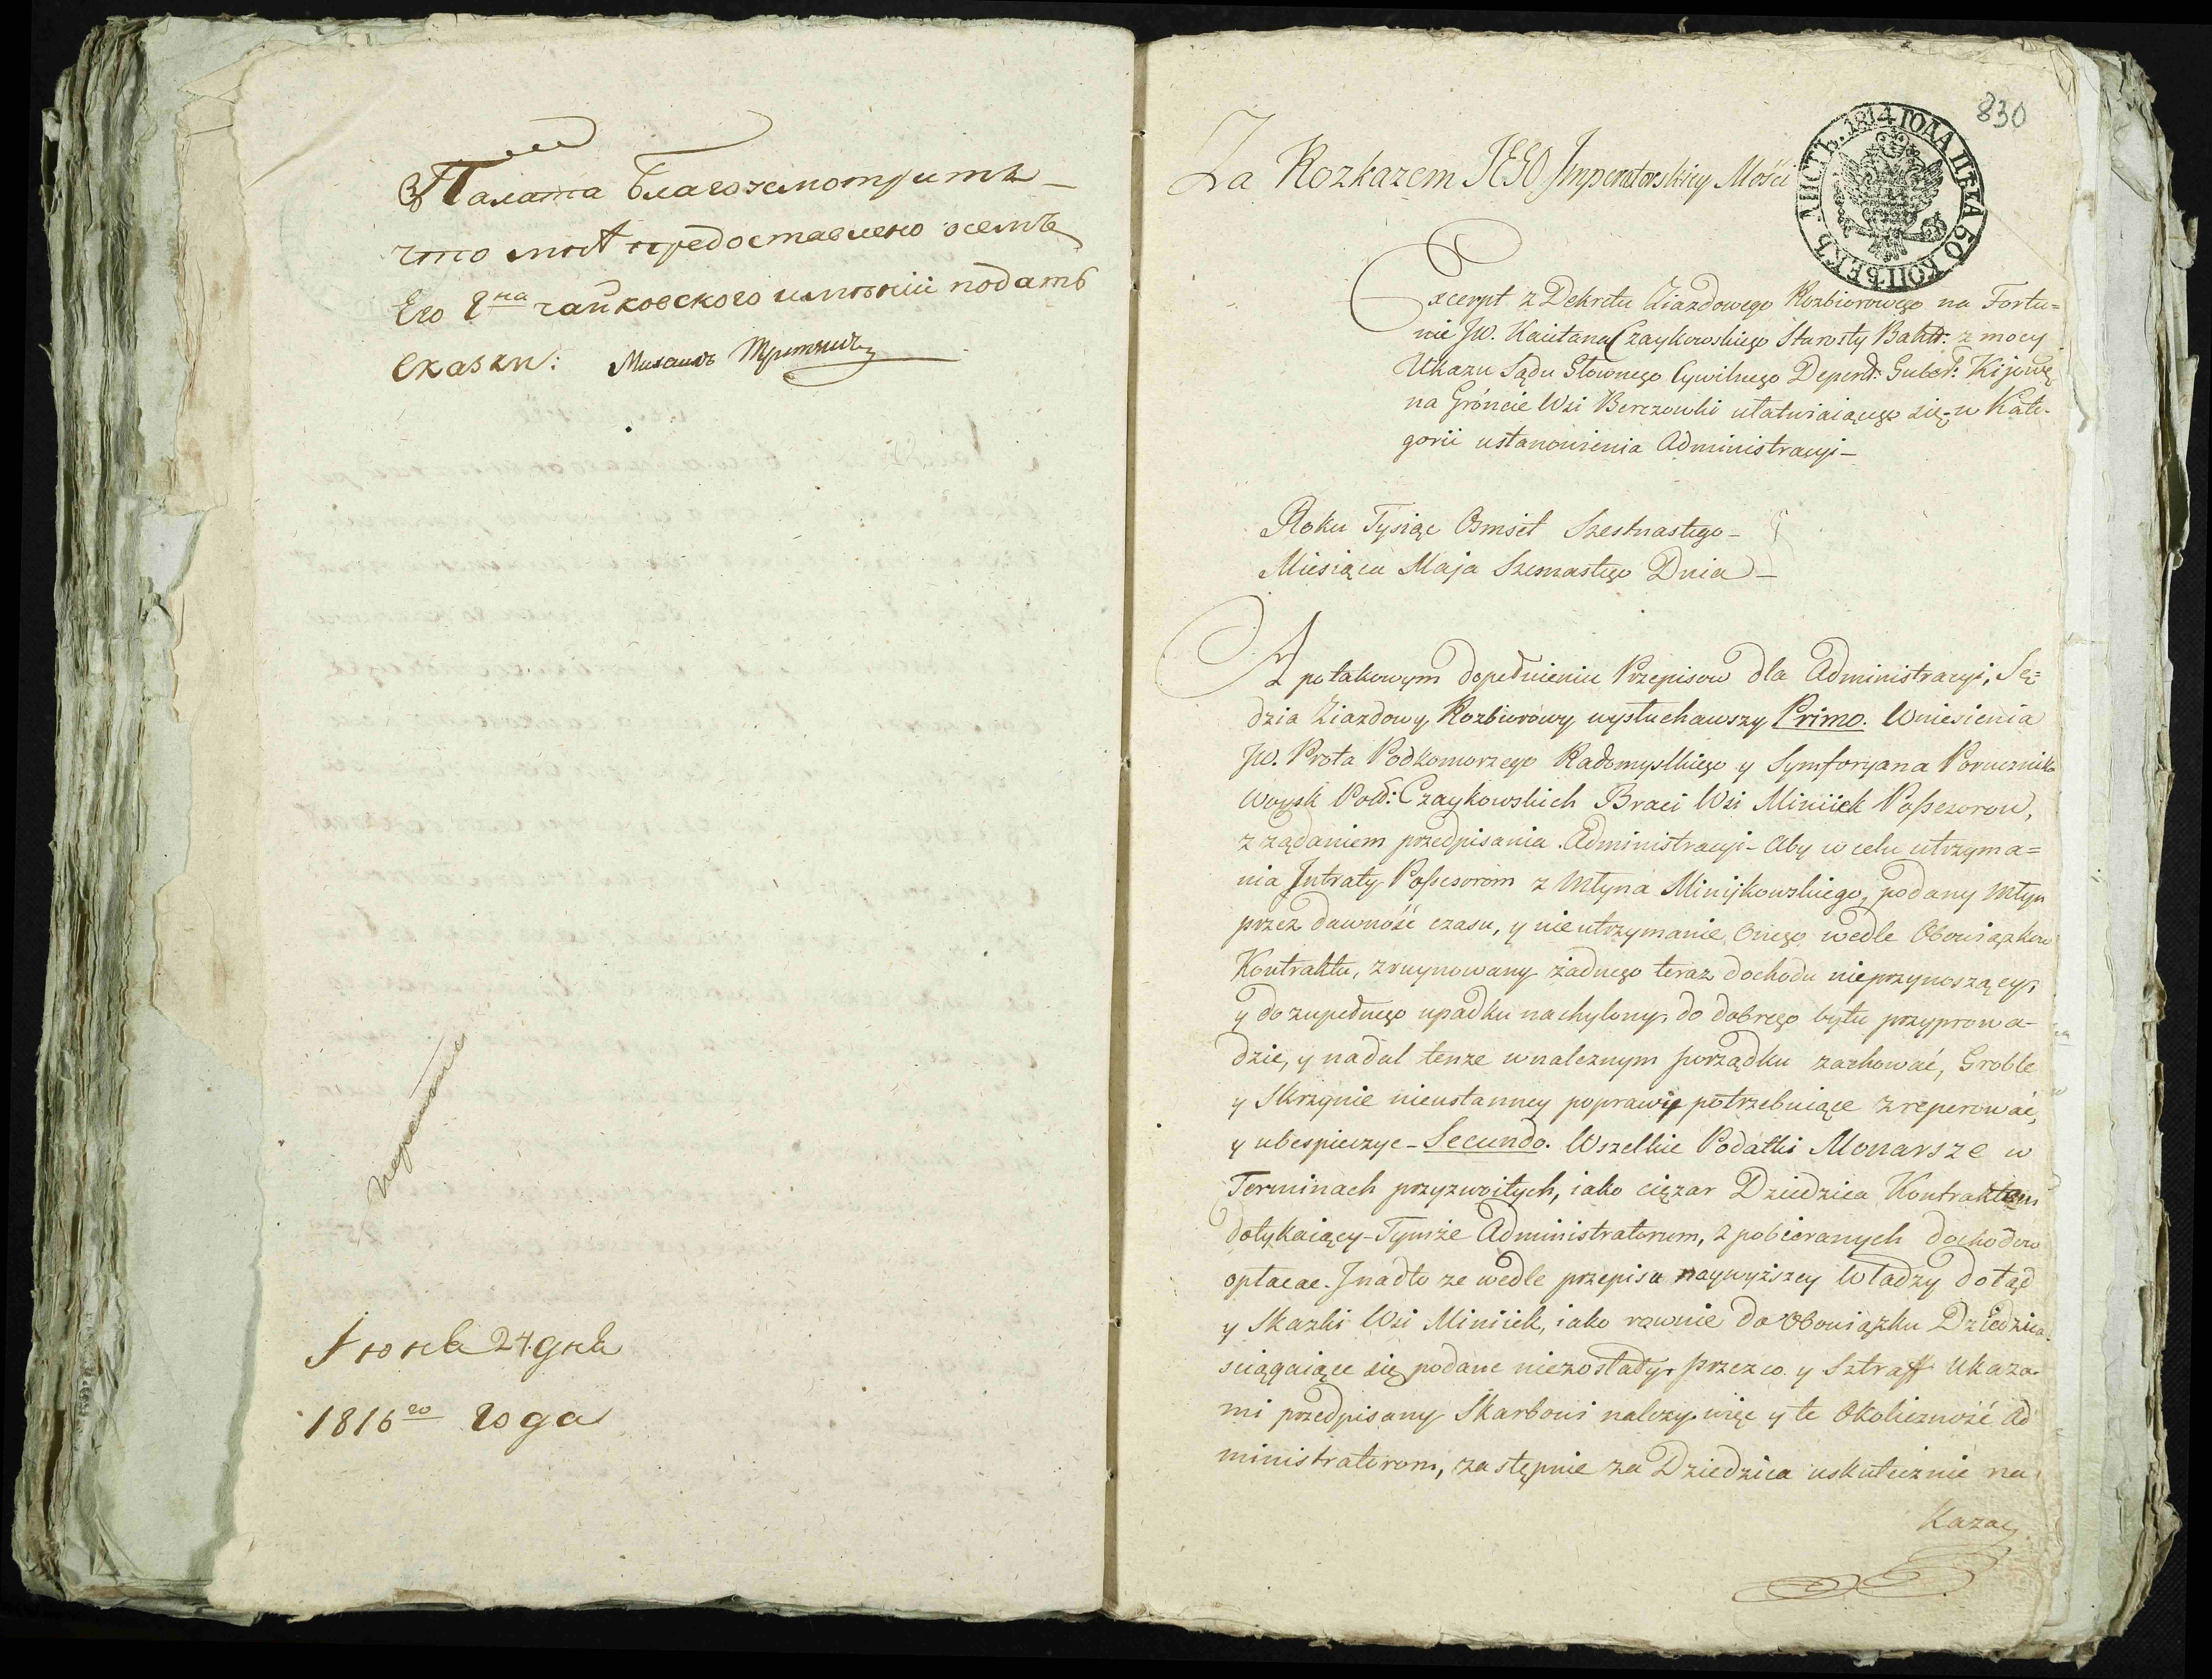 Палата благоусмотритъ
что мнѣ предоставлено осемъ
Его Г-на Чайковского имѣнiи подать
сказки: Михаилъ
Iюня 24 дня
1816го года
830
ЛИСТЪ. 1814 ГОДА ЦѢНА 50 КОПѢЕКЪ
Za Rozkazem JEGO Imperatorskiey Mości
Excerpt z Dekretu Ziazdowego Rozbiorowego na Fortu=
nie JW. Kaietana Czaykowskiego Starosty z mocy
Ukazu Sądu Głownego Cywilnego Depart: Guber: Kijow:
na Gróncie Wsi Berezowki ułatwiaiącego się w Kate-
gorii ustanowienia Administracyi-
Roku Tysiąc Osmset Szestnastego-
Miesiąca Maja Szesnastego Dnia-
A po takowym dopełnieniu Przepisow dla Administracyi, Sę=
dzia Ziazdowy Rozbiorowy wysłuchawszy Primo. Wniesienia
JW. Prota Podkomorzego Radomyslkiego y Symforyana Porucznika
Woysk Pol: Czaykowskich Braci Wsi Miniiek Possezorow,
z rządaniem przedpisania Administracyi- Aby w celu utrzyma=
nia Intraty Possesorom z Młyna Minijkowskiego, podany Młyn
przez dawność czasu, y nieutrzymanie Onego wedle Obowiązkow
Kontraktu, zruynowany żadnego teraz dochodu nieprzynoszący,
y do zupełnego upadku nachylony, do dobrego bytu przyprowa-
dzic, y nadal tenze w nalcznym porządku zachować, Groble
y Skrzynie nieustanney poprawy potrzebuiące zreperować,
y ubespieczyc- Secundo. Wszelkie Podatki Monarsze w
Terminach przyzwoitych, iako ciężar Dziedzica Kontraktem
dotykaiący- Tymże Administratorum, z pobieranych dochodow
opłacac. Inadto ze wedle przepisu naywyższey Władzy dotąd
y Skazki Wsi Miniiek, iako rownie do Obowiązku Dziedzica
sciągaiące się podane niezostały, przez co y Sztraff Ukaza-
mi przedpisany Skarbowi nalezy, więc y te Okoliczność Ad
ministratorom, zastępnie za Dziedzica uskutecznic na
Kazac